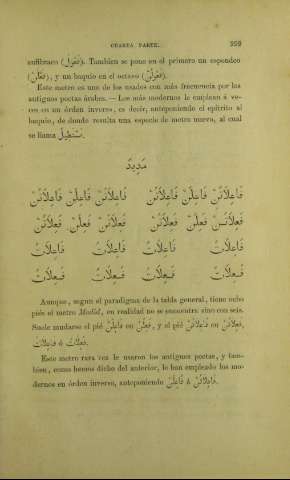 CUARTA PARTE. 359
anfíbraco (فَعُولُ). Tambien se pone en el primero un espondeo
(فَعْلُنْ), y un baquio en el octavo (فَعُولُنْ).
Este metro es uno de los usados con más frecuencia por los
antiguos poetas árabes. — Los más modernos le emplean á ve-
ces en un órden inverso, es decir, anteponiendo el epítrito al
baquio, de donde resulta una especie de metro nuevo, al cual
se llama
مَدِيدْ
فَاعِلَاتُنْ فَاعِلُنْ فَاعِلَاتُنْ فَاعِلَاتُنْ فَاعِلُنْ فَاعِلَاتُنْ
فَعِلَاتُنْ فَعِلُنْ فَعِلَاتُنْ فَعِلَاتُنْ فَعِلُنْ فَعِلَاتُنْ
فَاعِلَاتُ فَاعِلَاتُ فَاعِلَاتُ فَاعِلَاتُ
فَعِلَاتُ فَعِلَاتُ فَعِلَاتُ فَعِلَاتُ
Aunque, segun el paradigma de la tabla general, tiene ocho
piés el metro Madid, en realidad no se encuentra sino con seis.
Suele mudarse el pié فَاعِلُنْ en فَعِلُنْ, y el pié فَاعِلَاتُنْ en فَعِلَاتُنْ,
فَاعِلَاتُ ó فَعِلَاتُ.
Este metro rara vez le usaron los antiguos poetas, y tam-
bien, como hemos dicho del anterior, le han empleado los mo-
dernos en órden inverso, anteponiendo فَاعِلُنْ á فَاعِلَاتُنْ.